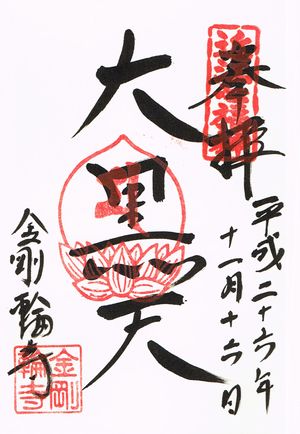 奉拝
平成二十六年
十一月十六日
大黒天
金剛輪寺
金剛
輪寺